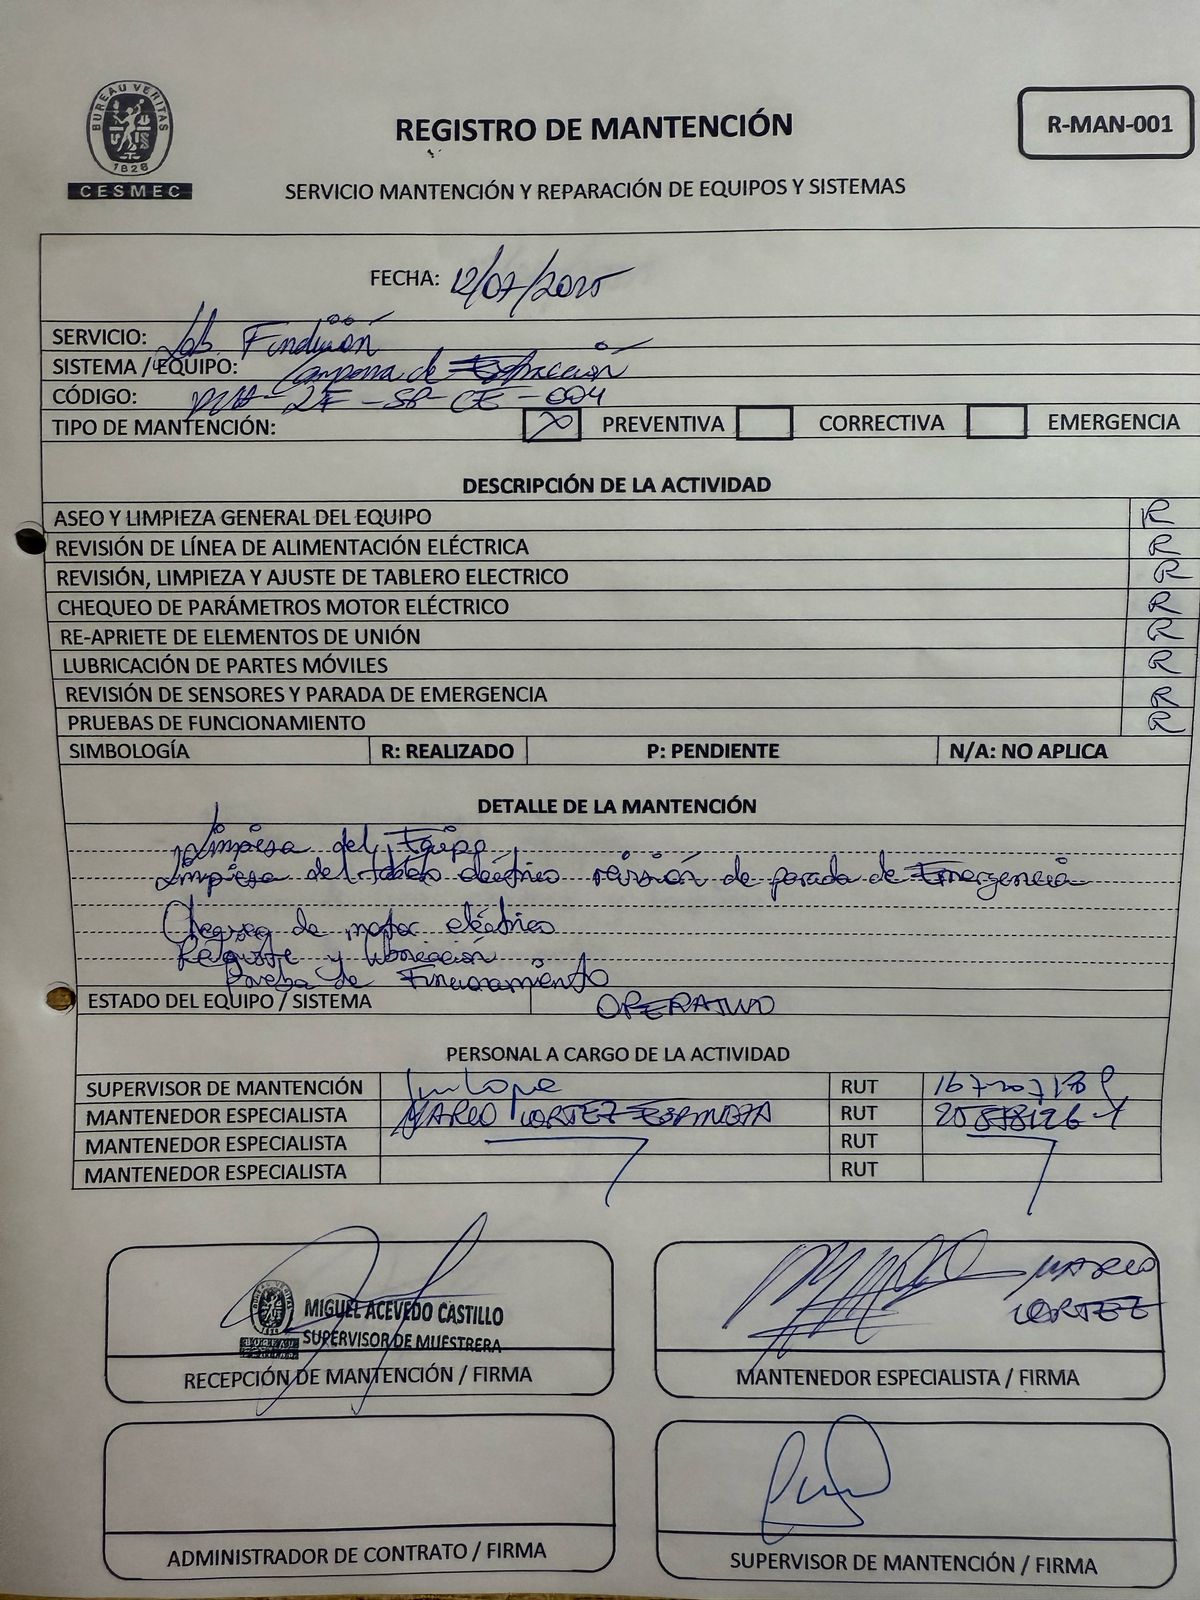 BUREAU VERITAS
1828
CESMEC
REGISTRO DE MANTENCIÓN
R-MAN-001
SERVICIO MANTENCIÓN Y REPARACIÓN DE EQUIPOS Y SISTEMAS
FECHA: 12/07/2025
SERVICIO: Lab. Fundición
SISTEMA / EQUIPO: Campana de Extracción
CÓDIGO: -SP-CE-004
TIPO DE MANTENCIÓN: X PREVENTIVA CORRECTIVA EMERGENCIA
DESCRIPCIÓN DE LA ACTIVIDAD
ASEO Y LIMPIEZA GENERAL DEL EQUIPO R
REVISIÓN DE LÍNEA DE ALIMENTACIÓN ELÉCTRICA R
REVISIÓN, LIMPIEZA Y AJUSTE DE TABLERO ELECTRICO R
CHEQUEO DE PARÁMETROS MOTOR ELÉCTRICO R
RE-APRIETE DE ELEMENTOS DE UNIÓN R
LUBRICACIÓN DE PARTES MÓVILES R
REVISIÓN DE SENSORES Y PARADA DE EMERGENCIA R
PRUEBAS DE FUNCIONAMIENTO R
SIMBOLOGÍA R: REALIZADO P: PENDIENTE N/A: NO APLICA
DETALLE DE LA MANTENCIÓN
Limpiesa del Equipo
Limpiesa del tablero eléctrico revisión de parada de Emergencia
Chequeo de motor eléctrico
Reajuste y lubricación
Prueba de Funcionamiento
ESTADO DEL EQUIPO / SISTEMA OPERATIVO
PERSONAL A CARGO DE LA ACTIVIDAD
SUPERVISOR DE MANTENCIÓN RUT
MANTENEDOR ESPECIALISTA MARCO CORTEZ ESPINOZA RUT
MANTENEDOR ESPECIALISTA RUT
MANTENEDOR ESPECIALISTA RUT
MIGUEL ACEVEDO CASTILLO
SUPERVISOR DE MUESTRERA
RECEPCIÓN DE MANTENCIÓN / FIRMA
MARCO
CORTEZ
MANTENEDOR ESPECIALISTA / FIRMA
ADMINISTRADOR DE CONTRATO / FIRMA
SUPERVISOR DE MANTENCIÓN / FIRMA